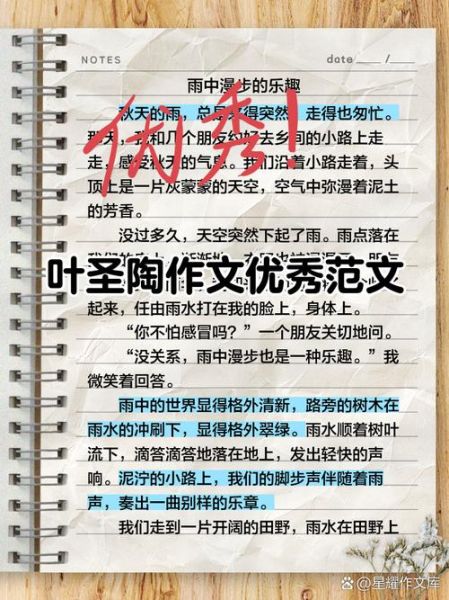 NOTES
date ____/____
雨中漫步的乐趣
秋天的雨，总是来得突然，走得也匆忙。
那天，我和几个朋友约好去乡间的小路上走
走，感受秋天的气息。我们沿着小路走着，头
顶上是一片灰蒙蒙的天空，空气中弥漫着泥土
的芳香。
优秀！
没过多久，天空突然下起了雨。雨点落在
叶圣陶作文优秀范文
起来，任由雨水打在我的脸上，身体上。
“你不怕感冒吗？”一个朋友关切地问。
“没关系，雨中漫步也是一种乐趣。”我
微笑着回答。
雨中的世界显得格外清新，路旁的树木在
雨水的冲刷下，显得格外翠绿。雨水顺着树叶
流下，滴答滴答地落在地上，发出轻快的声
响。泥泞的小路上，我们的脚步声伴随着雨
声，奏出一曲别样的乐章。
我们走到一片开阔的田野，雨水在田野上
@星耀作文库